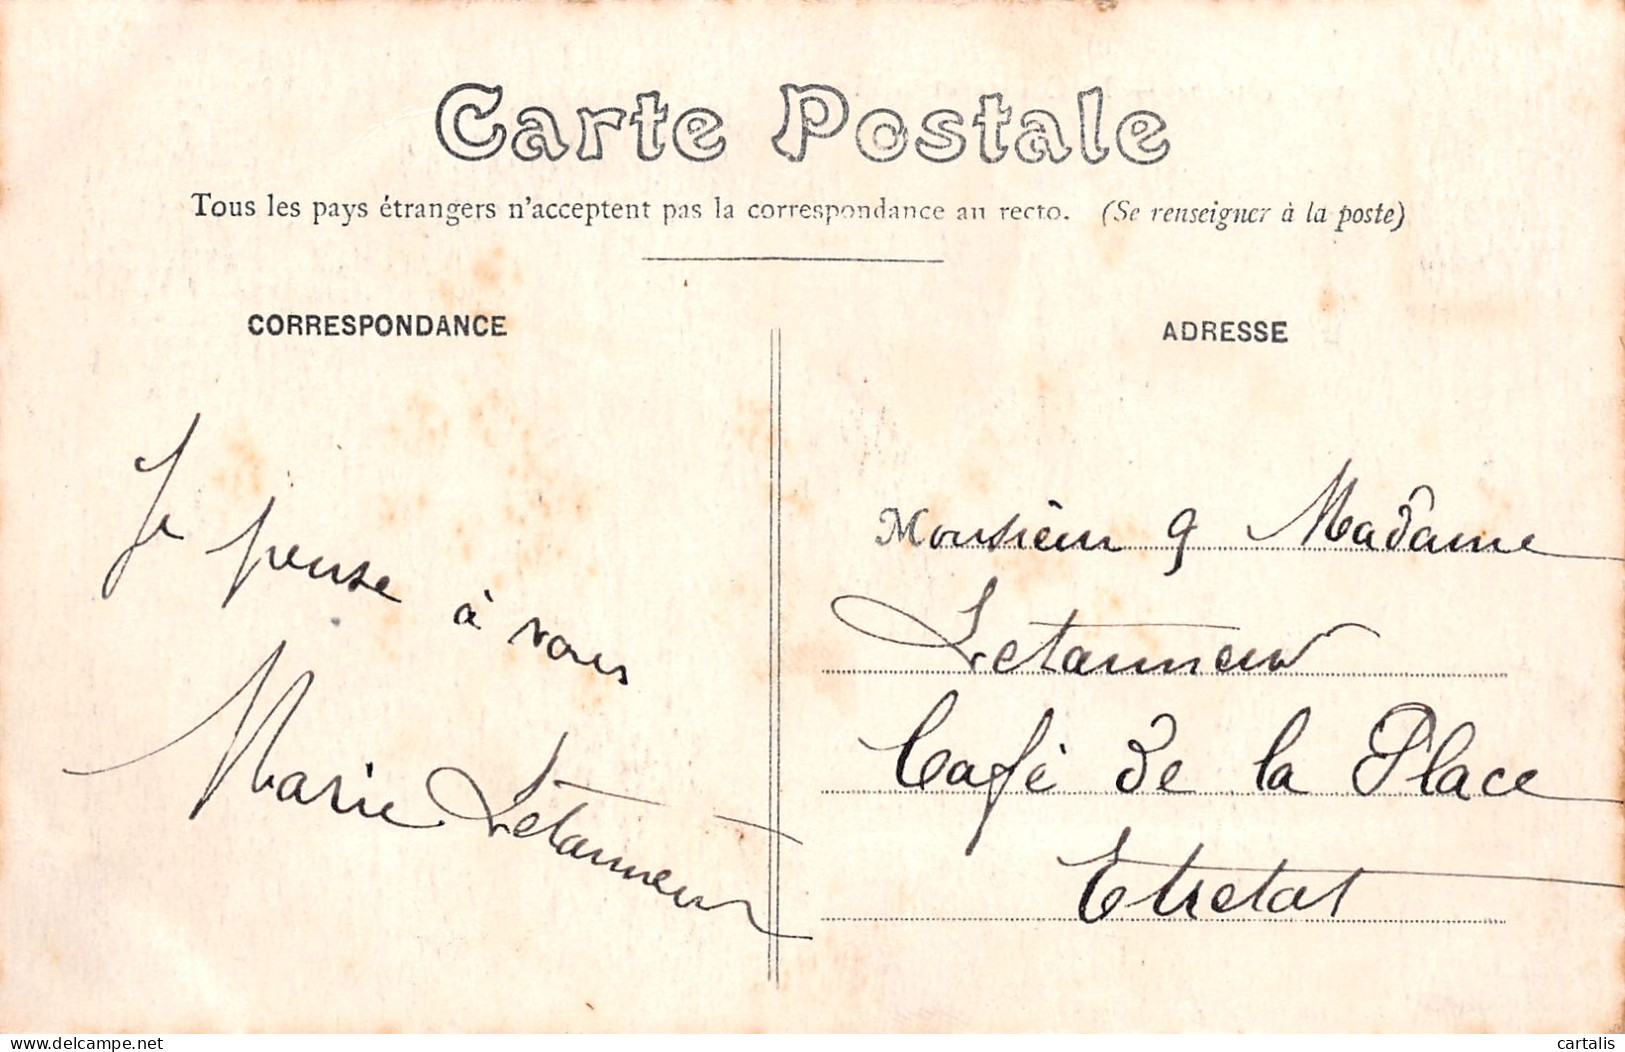 Carte Postale
Tous les pays étrangers n'acceptent pas la correspondance au recto. (Se renseigner à la poste)
CORRESPONDANCE
Je pense à vous
Marie Letanneur
ADRESSE
Monsieur & Madame
Letanneur
Café de la Place
Etretat
delcampe.net
cartalis